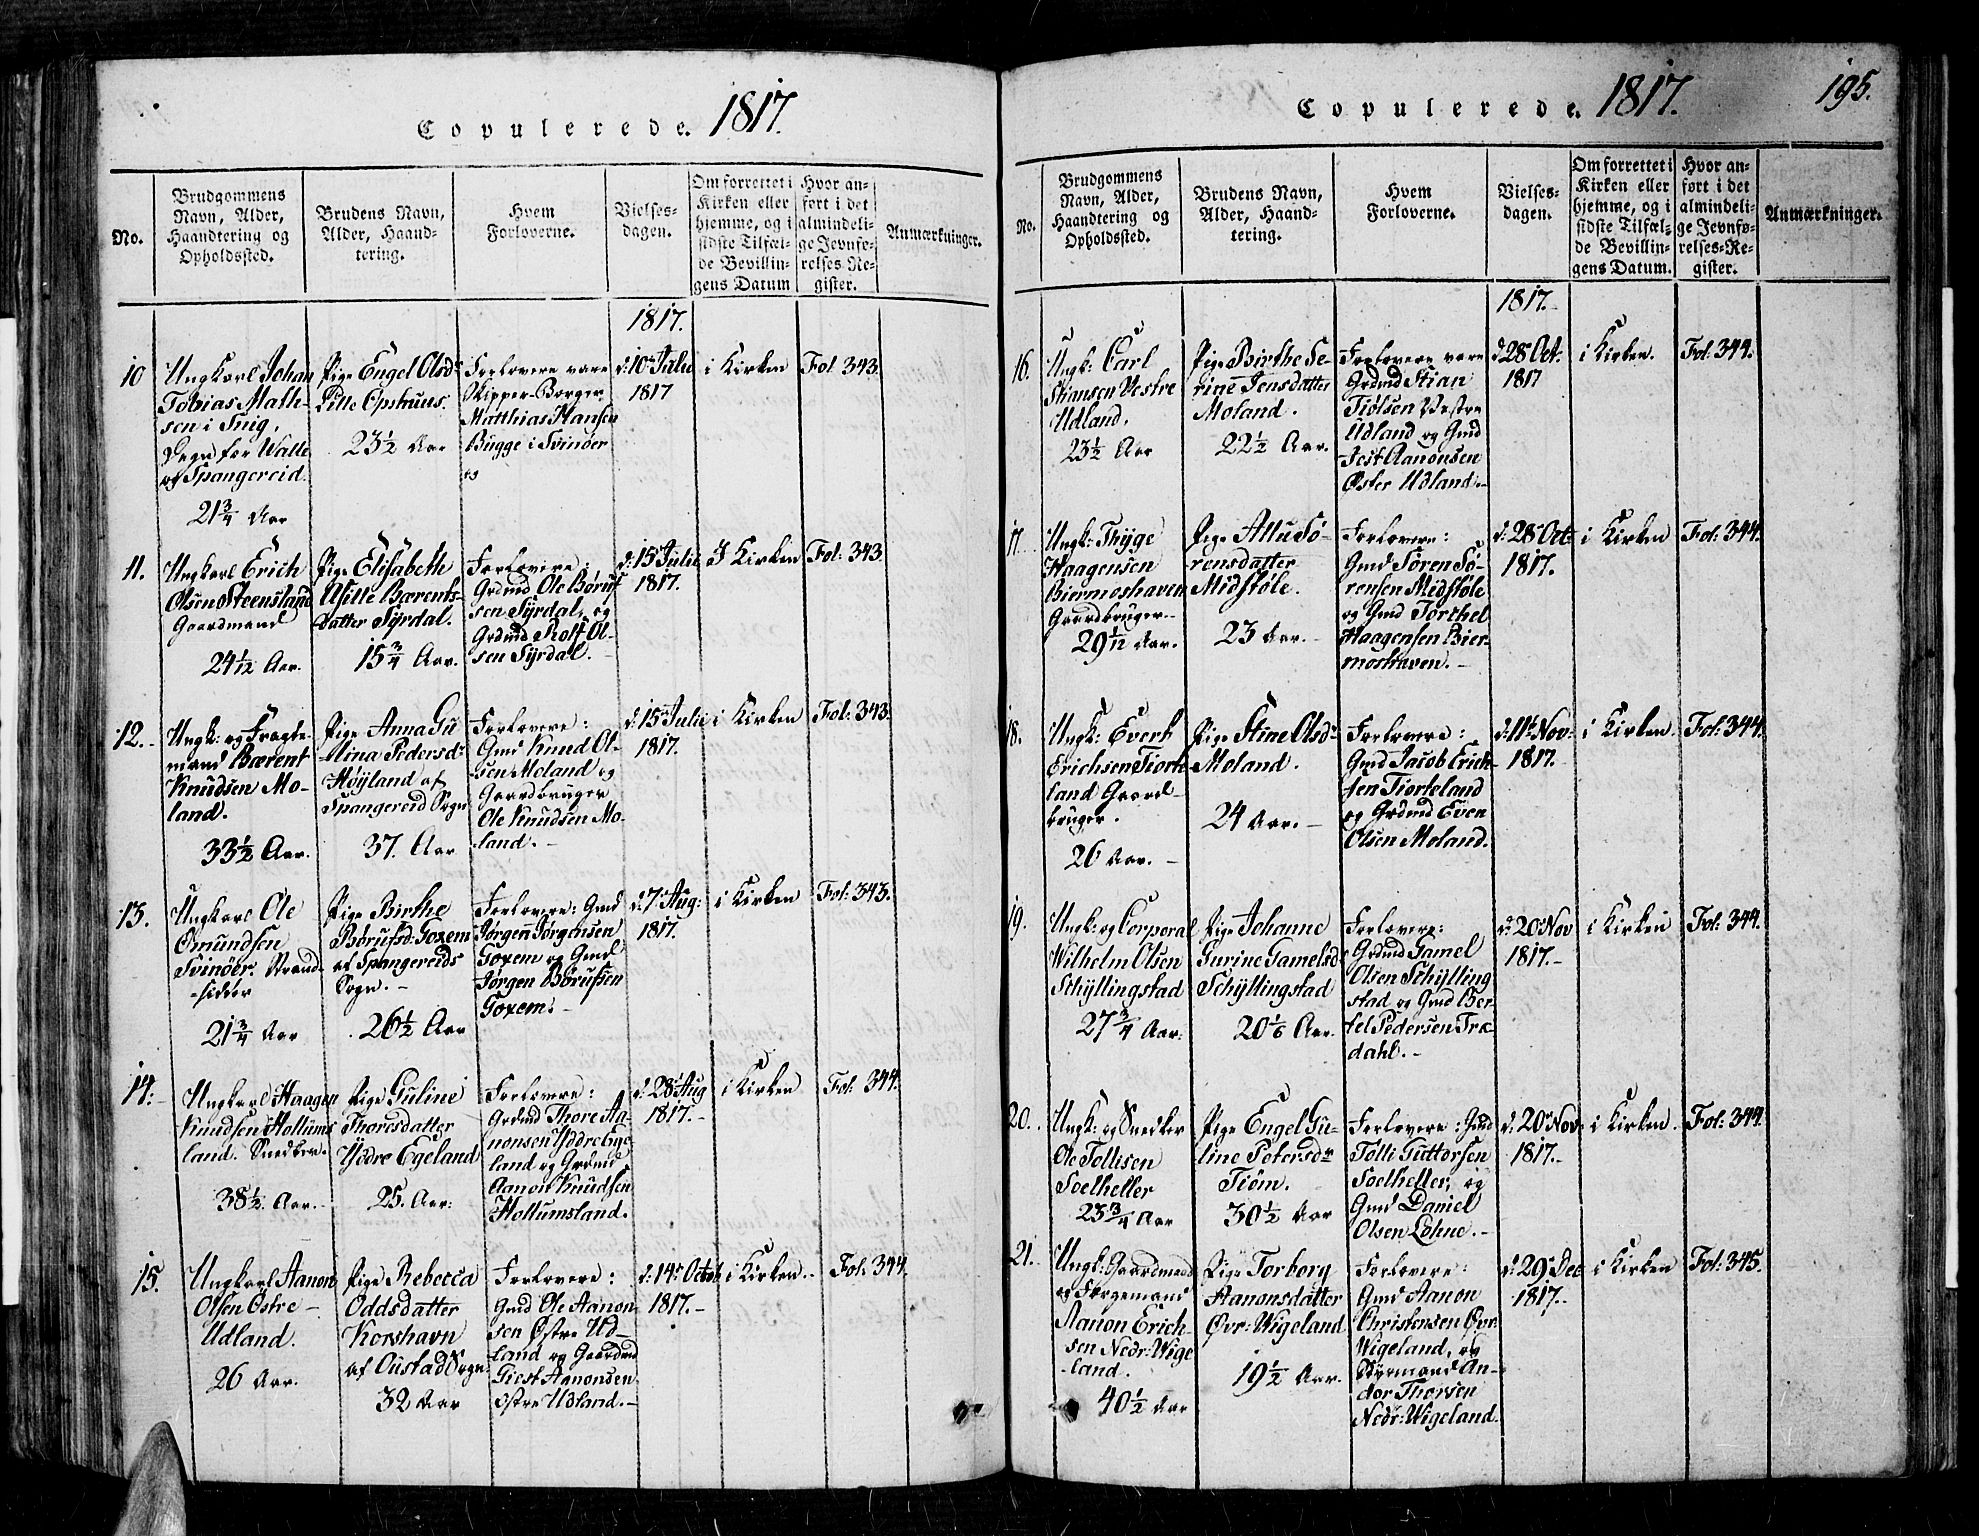 Copulerede. 1817.
No.
Brudgommens
Navn, Alder,
Haandtering og
Opholdssted.
Brudens Navn,
Alder, Haand-
tering.
Hvem
Forloverne.
Vielses-
dagen.
Om forrettet i
Kirken eller
hjemme, og i
sidste Tilfæl-
de Bevillin-
gens Datum
Hvor an-
ført i det
almindeli-
ge Jevnfø-
relses-Re-
gister.
Anmærkninger.
1817.
10
Ungkarl Johan
Tobias Math-
sen i Snig,
Degn for Walle
og Spangereid.
21 3/4 Aar
Pige Engel Olsdr
Lille Opstruus.
23 1/2 Aar
Forlovere vare
Skipper-Borger
Matthias Hansen
Bugge i Svinöer
og
d: 10 Julii
1817
i Kirken
Fol 343.
11.
Ungkarl Erich
Olsen Steensland
Gaardmand
24 1/12 Aar.
Pige Elisabeth
Asille Bærents-
datter Syrdal.
15 3/4 Aar.
Forlovere:
Grdmd Ole Börüf-
sen Syrdal, og
Grdmd Rolf Ol-
sen Syrdal.-
d: 15 Julii
1817.
I Kirken
Fol: 343
12.-
Ungk: og Fragte-
mand Bærent
Knudsen Mo-
land.
33 1/2 Aar.
Pige Anna Gu
lina Pedersdr
Höyland af
Spangereid Sogn
37. Aar
Forlovere:
Gmd Knud Ol-
sen Moland og
Gaardbruger
Ole Knudsen Mo-
land.-
d: 15 Julii
1817.
i Kirken
Fol: 343.
13.
Ungkarl Ole
Omundsen
Svinöer. Strand-
-sidder
21 3/4 Aar
Pige Birthe
Börufsd: Goxem
af Spangereids
Sogn.-
26 1/2 Aar
Forlovere: Gmd
Jörgen Jörgensen
Goxem og Gmd
Jörgen Börufsen
Goxem.-
d: 7 Aug:
1817.
i Kirken
Fol: 343.
14.-
Ungkarl Haagen
Knudsen Hollüms
land. Snedker.
38 1/2. Aar.-
Pige Guline
Thoresdatter
Yddre Egeland
25. Aar.
Forlovere:
Grdmd Thore Aa-
nonsen Yddre Ege-
land og Grdmd
Aanon Knudsen
Hollumsland.
d: 28 Aug
1817.-
i Kirken
Fol: 344.
15.
Ungkarl Aanon
Olsen Östre-
Udland.
26 Aar.
Pige Rebecca
Oddsdatter
Korshavn
af Oustad Sogn.
32 Aar
Forlovere:
Gmd Ole Aanon-
sen Östre Ud-
land og Gaardmd
Giest Aanonsen
östre Udland.-
d: 14 Octob
1817.-
i Kirken.
Fol: 344.
Copulerede. 1817.
195.
No.
Brudgommens
Navn, Alder,
Haandtering og
Opholdssted.
Brudens Navn,
Alder, Haand-
tering.
Hvem
Forloverne.
Vielses-
dagen.
Om forrettet i
Kirken eller
hjemme, og i
sidste Tilfæl-
de Bevillin-
gens Datum.
Hvor an-
ført i det
almindeli-
ge Jevnfø-
relses-Re-
gister.
Anmærkninger.
1817.
16.
Ungk: Carl
Stiansen Vestre
Udland.
23 1/2 Aar
Pige Birthe Se-
rine Jensdatter
Moland.
22 1/2 Aar.
Forlovere vare
Grdmd Stian
Tiölsen Vestre
Udland og Gmd
Jest Aanonsen
Öster Udland.-
d 28 Oct:
1817
i Kirken.
Fol: 344.
17.
Ungk: Thyge
Haagensen
Biermoshaven
Gaardbruger.-
29 1/12 Aar.
Pige Allu Sö-
rensdatter
Midstöle.
23 Aar.-
Forlovere:
Gmd Sören Sö-
rensen Midstöle
og Gmd Torchel
Haagensen Bier-
moshaven.-
d: 28 Oct:
1817.
i Kirken
Fol: 344.
18.
Ungk: Evert
Erichsen Tiorte
land Gaard-
bruger.
26 Aar.-
Pige Stine Olsdr
Moland.
24 Aar.-
Forlovere:
Gmd Jacob Erich-
sen Tiorteland
og Grdmd Even
Olsen Moland.
d: 11t Nov:
1817.
i Kirken.
Fol: 344.
19.
Ungk: og Corporal
Wilhelm Olsen
Schyllingstad
27 3/4 Aar:
Pige Johanne
Gurine Gamelsd
Schyllingstad
20 1/6 Aar.
Forlovere:
Grdmd Gamel
Olsen Schylling
stad og Gmd Ber-
tel Pedersen Træ
dahl.-
d: 20 Nov
1817.-
i Kirken
Fol: 344.
20.
Ungk: og Snedker
Ole Tollisen
Soelheller
23 3/4 Aar
Pige Engel Gu-
line Petersdr
Tiöm.
30 1/2 Aar
Forlovere: Gmd
Tolli Guttorsen
Soelheller, og
Gmd Daniel
Olsen Löhne.-
d: 20 Nov
1817.-
i Kirken.
Fol: 344.
21.
Ungk: Gaardmand
og Færgemand
Aanon Erich-
sen Nedr: Wige
-land.
40 1/2 Aar
Pige Torborg
Aanonsdatter
Övr: Wigeland
19 1/2 Aar.
Forlovere:
Gmd Aanon
Christensen Övr.
Wigeland, og
Styrmand An-
dor Thorsen
Nedr: Wigeland.
d: 29 Dec
1817.-
i Kirken
Fol: 345.